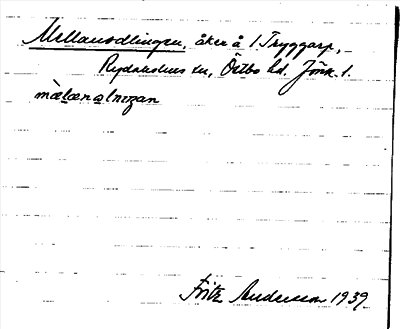 Mellanodlingen, åker å 1 Tryggarp,
Rydaholms sn, Östbo hd. Jönk. l.
mälænalnigan
Fritz Andersson 1939